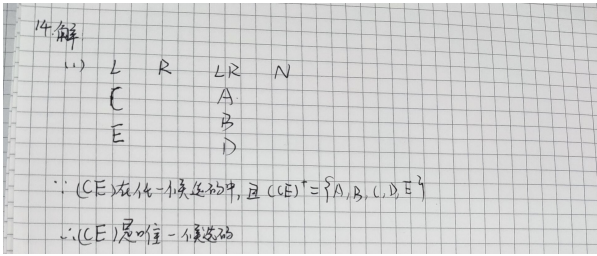 14.解
(1) L R LR N
C A
B
E D
∵(CE)在任一候选码中,且(CE)⁺={A,B,C,D,E}
∴(CE)是唯一候选码